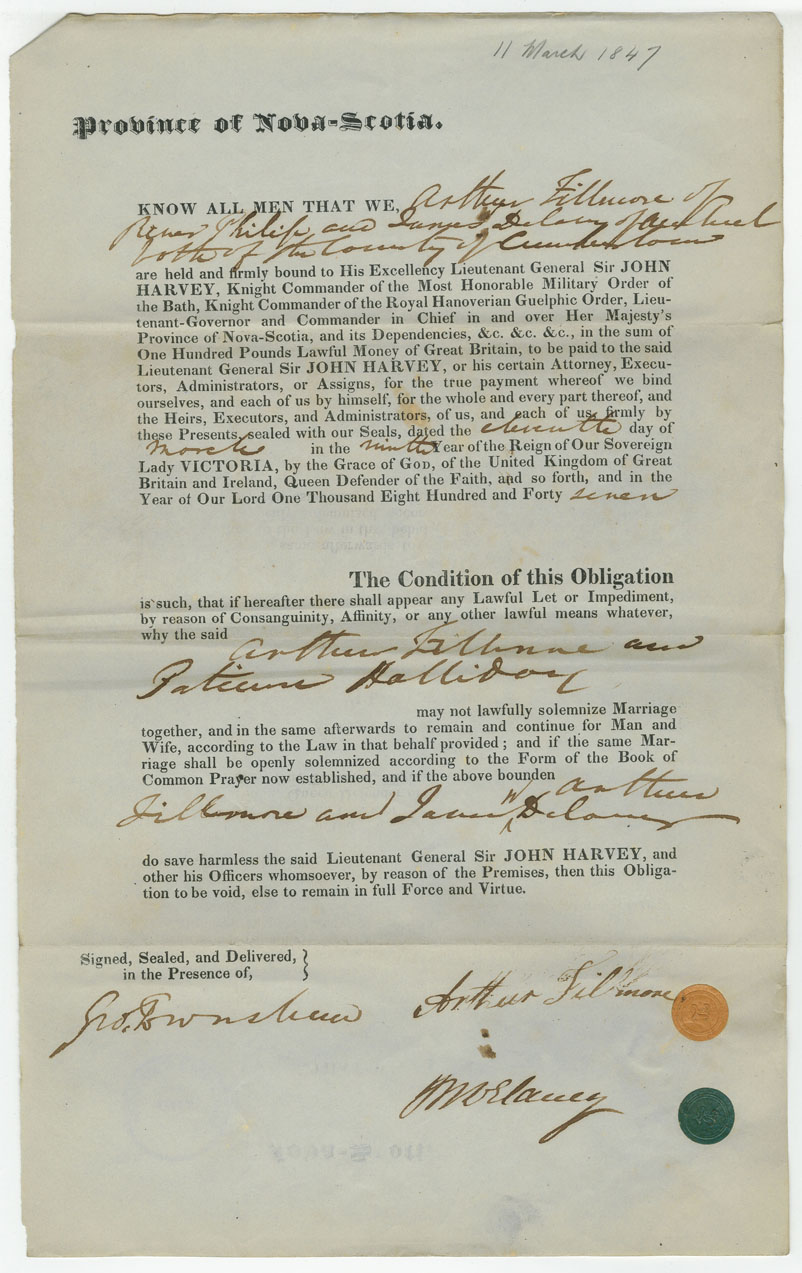 11 March 1847
Province of Nova-Scotia.
KNOW ALL MEN THAT WE, Arthur Fillmore of
River Philip and James Delany of Amherst
both of the County of Cumberland
are held and firmly bound to His Excellency Lieutenant General Sir JOHN
HARVEY, Knight Commander of the Most Honorable Military Order of
the Bath, Knight Commander of the Royal Hanoverian Guelphic Order, Lieu-
tenant-Governor and Commander in Chief in and over Her Majesty's
Province of Nova-Scotia, and its Dependencies, &c. &c. &c., in the sum of
One Hundred Pounds Lawful Money of Great Britain, to be paid to the said
Lieutenant General Sir JOHN HARVEY, or his certain Attorney, Execu-
tors, Administrators, or Assigns, for the true payment whereof we bind
ourselves, and each of us by himself, for the whole and every part thereof, and
the Heirs, Executors, and Administrators, of us, and each of us, firmly by
these Presents, sealed with our Seals, dated the eleventh day of
March in the ninth Year of the Reign of Our Sovereign
Lady VICTORIA, by the Grace of GOD, of the United Kingdom of Great
Britain and Ireland, Queen Defender of the Faith, and so forth, and in the
Year of Our Lord One Thousand Eight Hundred and Forty seven
The Condition of this Obligation
is such, that if hereafter there shall appear any Lawful Let or Impediment,
by reason of Consanguinity, Affinity, or any other lawful means whatever,
why the said Arthur Fillmore and
Patience Halliday
may not lawfully solemnize Marriage
together, and in the same afterwards to remain and continue for Man and
Wife, according to the Law in that behalf provided; and if the same Mar-
riage shall be openly solemnized according to the Form of the Book of
Common Prayer now established, and if the above bounden Arthur
Fillmore and James W Delaney
do save harmless the said Lieutenant General Sir JOHN HARVEY, and
other his Officers whomsoever, by reason of the Premises, then this Obliga-
tion to be void, else to remain in full Force and Virtue.
Signed, Sealed, and Delivered,
in the Presence of,
Geo. Townshend
Arthur Filmore